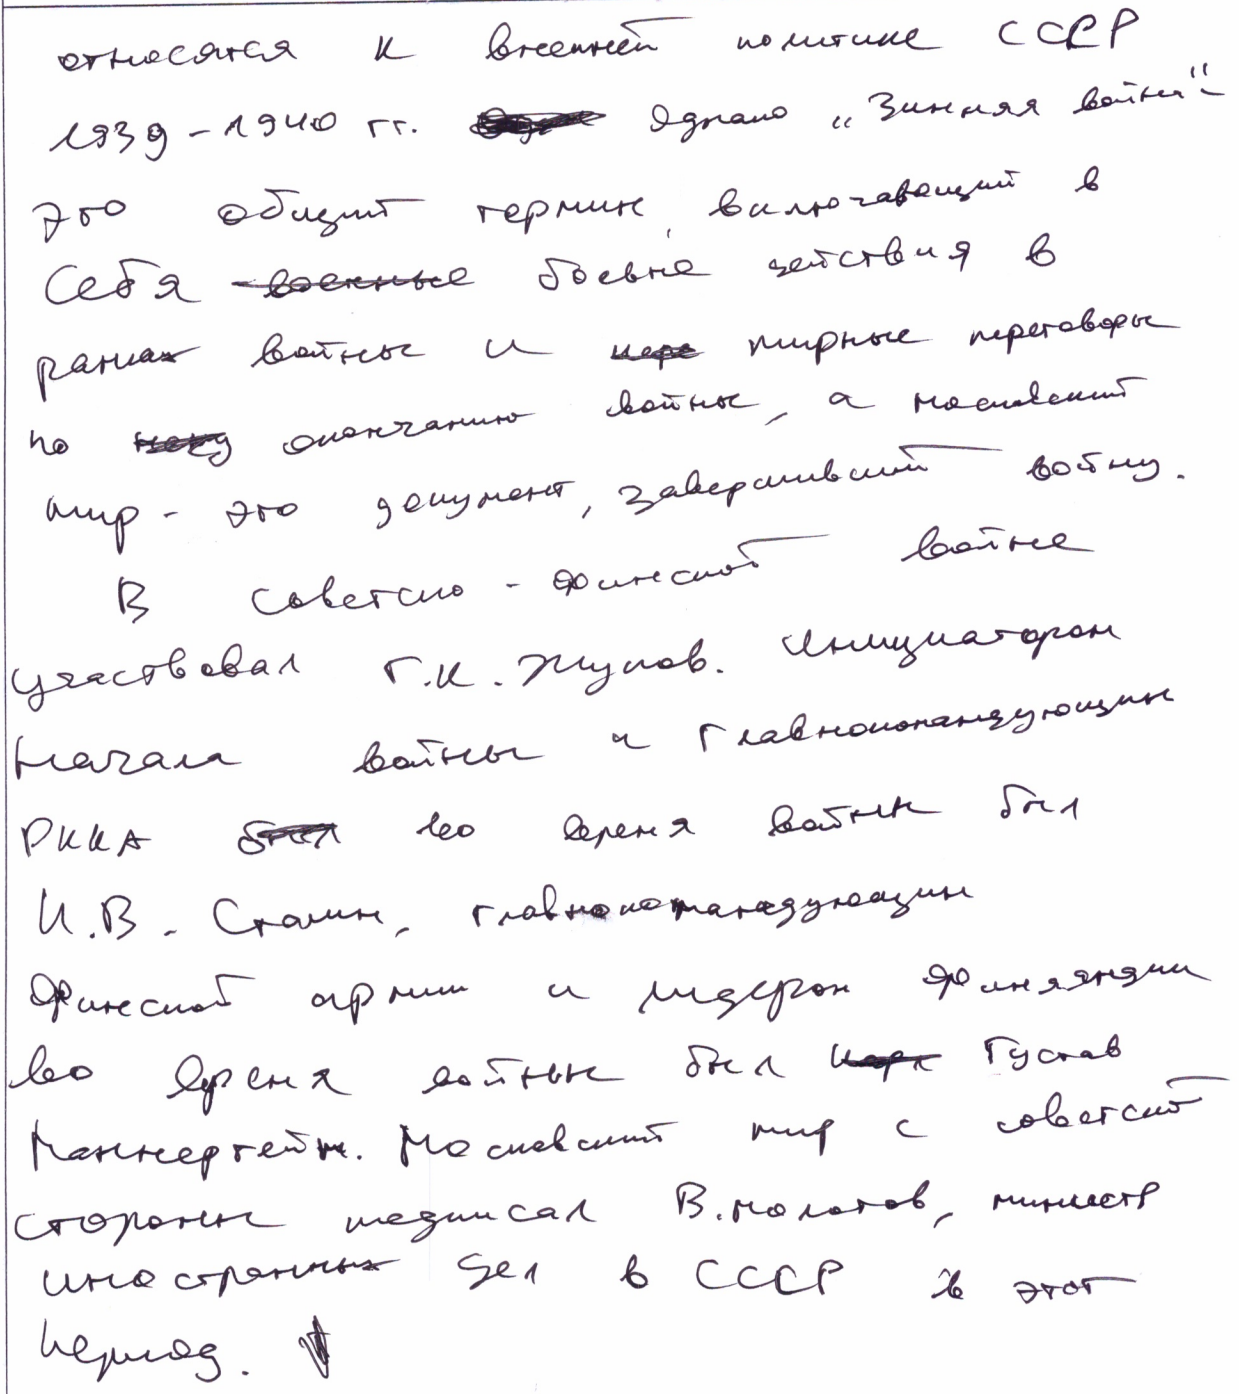 относятся к внешней политике СССР
1939-1940 гг. Однако „Зимняя война"-
это общий термин, включающий в
себя военные боевые действия в
рамках войны и мирные переговоры
по окончанию войны, а московский
мир - это документ, завершивший войну.
В советско-финской войне
участвовал Г.К. Жуков. Инициатором
начала войны и главнокомандующим
РККА был во время войны был
И.В. Сталин, главнокомандующим
финской армии и лидером Финляндии
во время войны был Карл Густав
Маннергейм. Московский мир с советской
стороны подписал В.Молотов, министр
иностранных дел в СССР в этот
период.